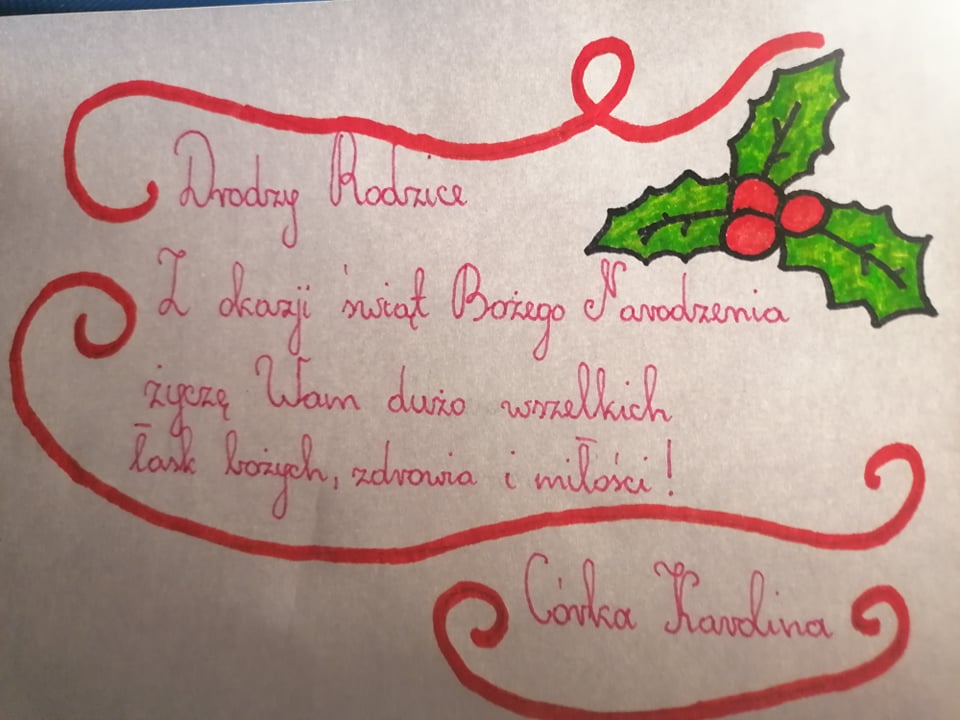 Drodzy Rodzice
Z okazji świąt Bożego Narodzenia
życzę Wam dużo wszelkich
łask bożych, zdrowia i miłości!
Córka Karolina